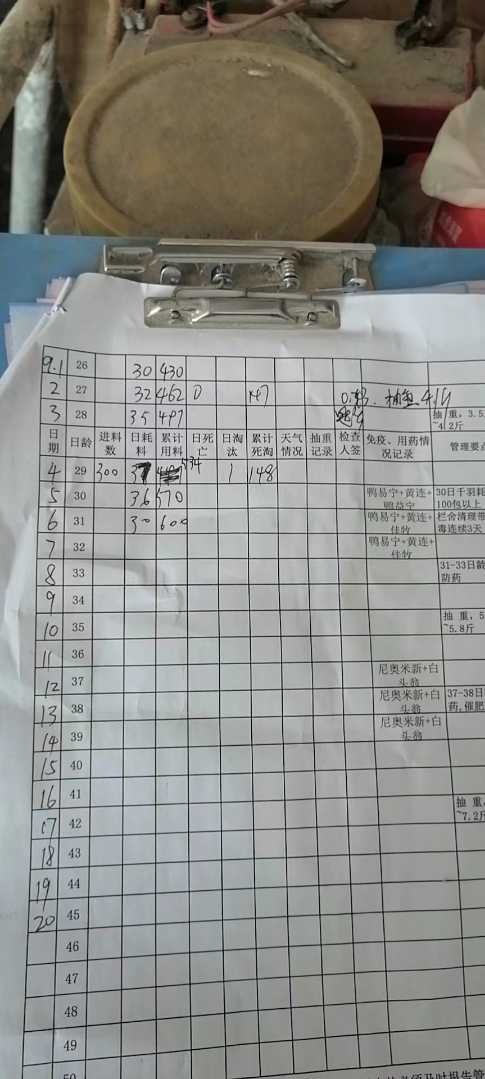 9.1 26 30 430
2 27 32 462 0 147
3 28 35 497 抽重，3.5
~4.2斤
日期 日龄 进料数 日耗料 累计用料 日死亡 日淘汰 累计死淘 天气情况 抽重记录 检查人签 免疫、用药情况记录 管理要点
4 29 300 37 534 1 148
5 30 36 570 鸭易宁+黄连+ 30日千羽耗
鸭益宁 100包以上
6 31 30 600 鸭易宁+黄连+ 栏舍清理带
佳牧 毒连续3天
7 32 鸭易宁+黄连+
佳牧
8 33 31-33日龄
防药
9 34
10 35 抽重，5
~5.8斤
11 36
12 37 尼奥米新+白
头翁
13 38 尼奥米新+白 37-38日
头翁 药,催肥
14 39 尼奥米新+白
头翁
15 40
16 41
17 42 抽重，
~7.2斤
18 43
19 44
20 45
46
47
48
49
50 必须及时报告管